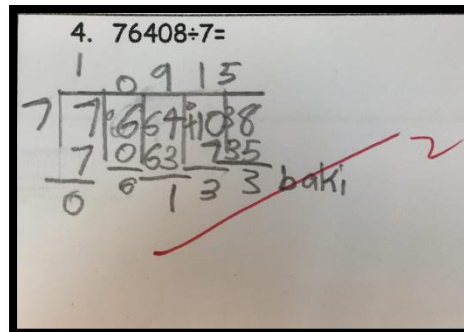 4. 76408÷7=
1 0 9 1 5
7 7 6 64 10 38
7 0 63 7 35
0 6 1 3 3 baki
2